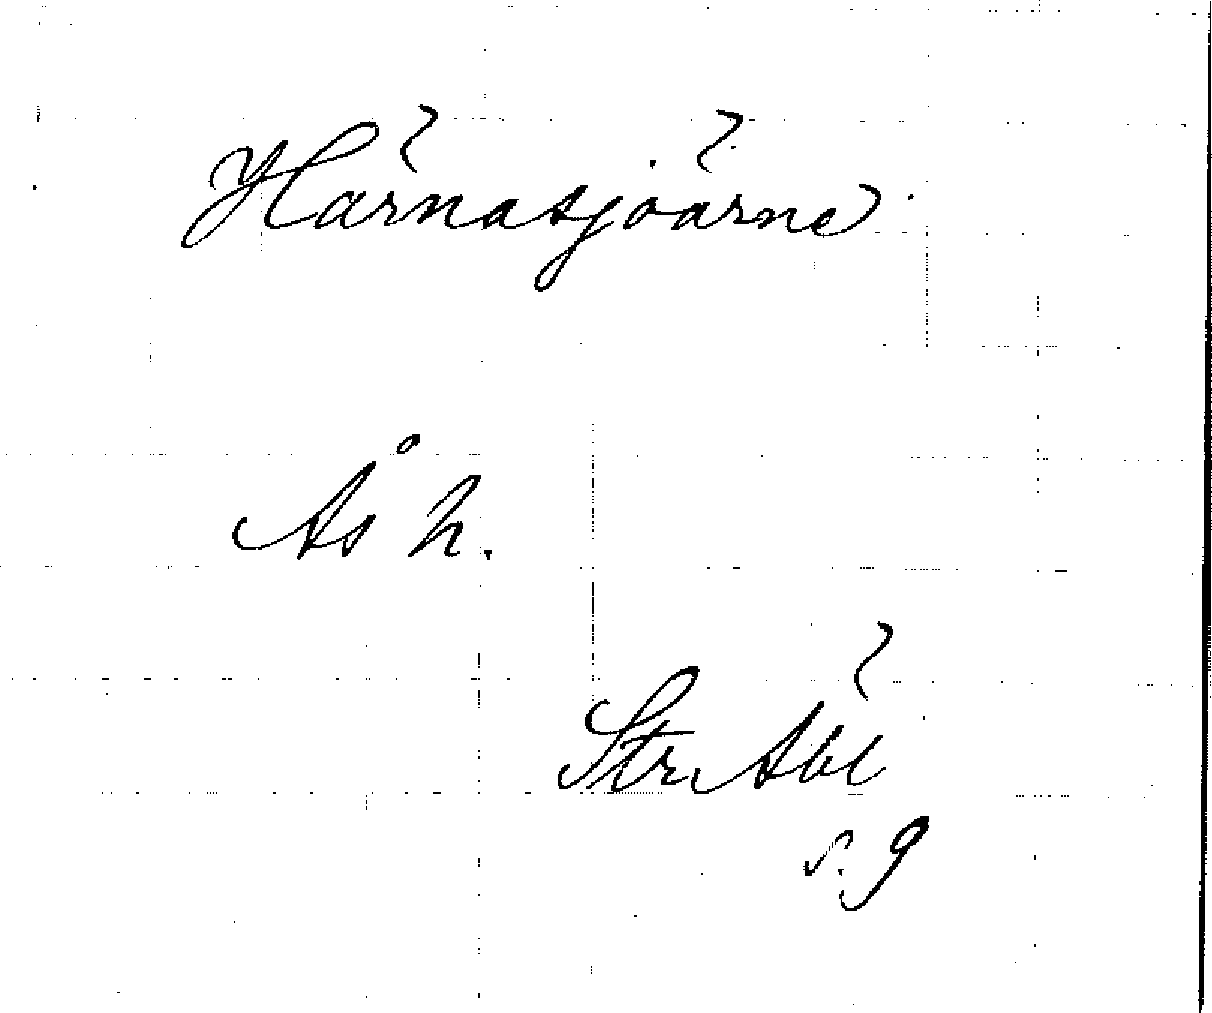 Härnasjöarne
Ås h.
Str Äbl
s. 9